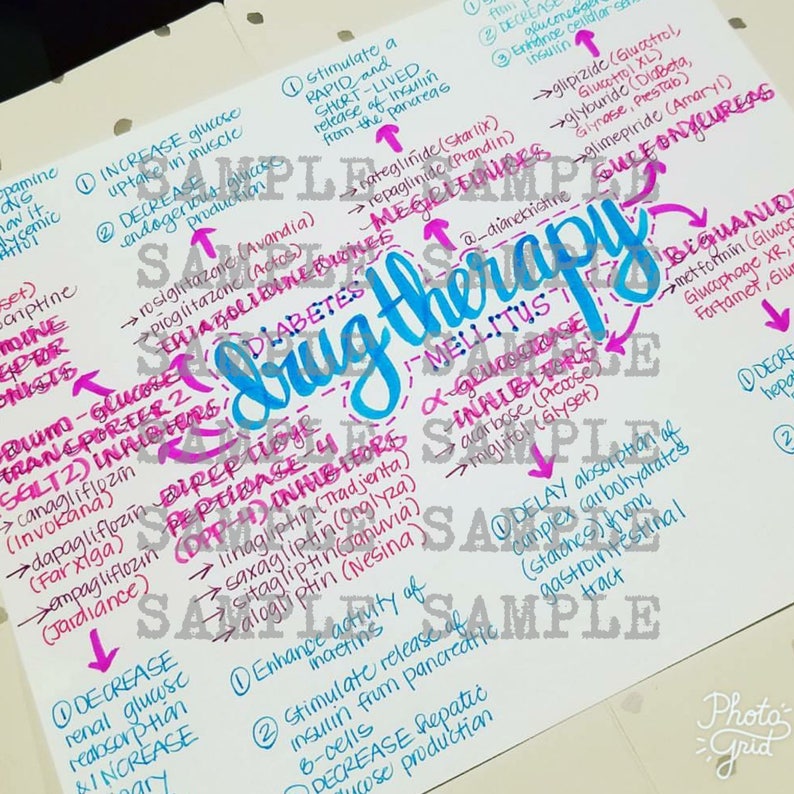 ② DECREASE
gluconeogen
③ Enhance cellular sens
insulin
① stimulate a
RAPID and
SHORT-LIVED
release of insulin
from the pancreas
→ glipizide (Glucotrol,
Glucotrol XL)
→ glyburide (DiaBeta,
Glynase, PresTab)
→ glimepiride (Amaryl)
SULFONYLUREAS
① INCREASE glucose
uptake in muscle
② DECREASE
endogenous glucose
production
→ nateglinide (Starlix)
→ repaglinide (Prandin)
MEGLITINIDES
→ rosiglitazone (Avandia)
→ pioglitazone (Actos)
THIAZOLIDINEDIONES
@_dianekristine
BIGUANID
→ metformin (Gluco
Glucophage XR,
Fortamet, Glu
① DECREA
hepa
②
DIABETES
drug therapy
MELLITUS
α-GLUCOSIDASE
INHIBITORS
→ acarbose (Precose)
→ miglitol (Glyset)
① DELAY absorption of
complex carbohydrates
(starches) from
gastrointestinal
tract
opamine
ow it
lycemic
oset)
ocriptine
MINE
EPTOR
ONISTS
DIUM-GLUCOSE
TRANSPORTER 2
(SGLT2) INHIBITORS
→ canagliflozin
(Invokana)
→ dapagliflozin
(Farxiga)
→ empagliflozin
(Jardiance)
① DECREASE
renal glucose
reabsorption
& INCREASE
nary
DIPEPTIDYL
PEPTIDASE 4
(DPP-4) INHIBITORS
→ linagliptin (Tradjenta)
→ saxagliptin (Onglyza)
→ sitagliptin (Januvia)
→ alogliptin (Nesina)
① Enhance activity of
incretins
② Stimulate release of
insulin from pancreatic
β-cells
③ DECREASE hepatic
glucose production
SAMPLE SAMPLE
SAMPLE SAMPLE
SAMPLE SAMPLE
SAMPLE SAMPLE
SAMPLE SAMPLE
SAMPLE SAMPLE
Photo
Grid